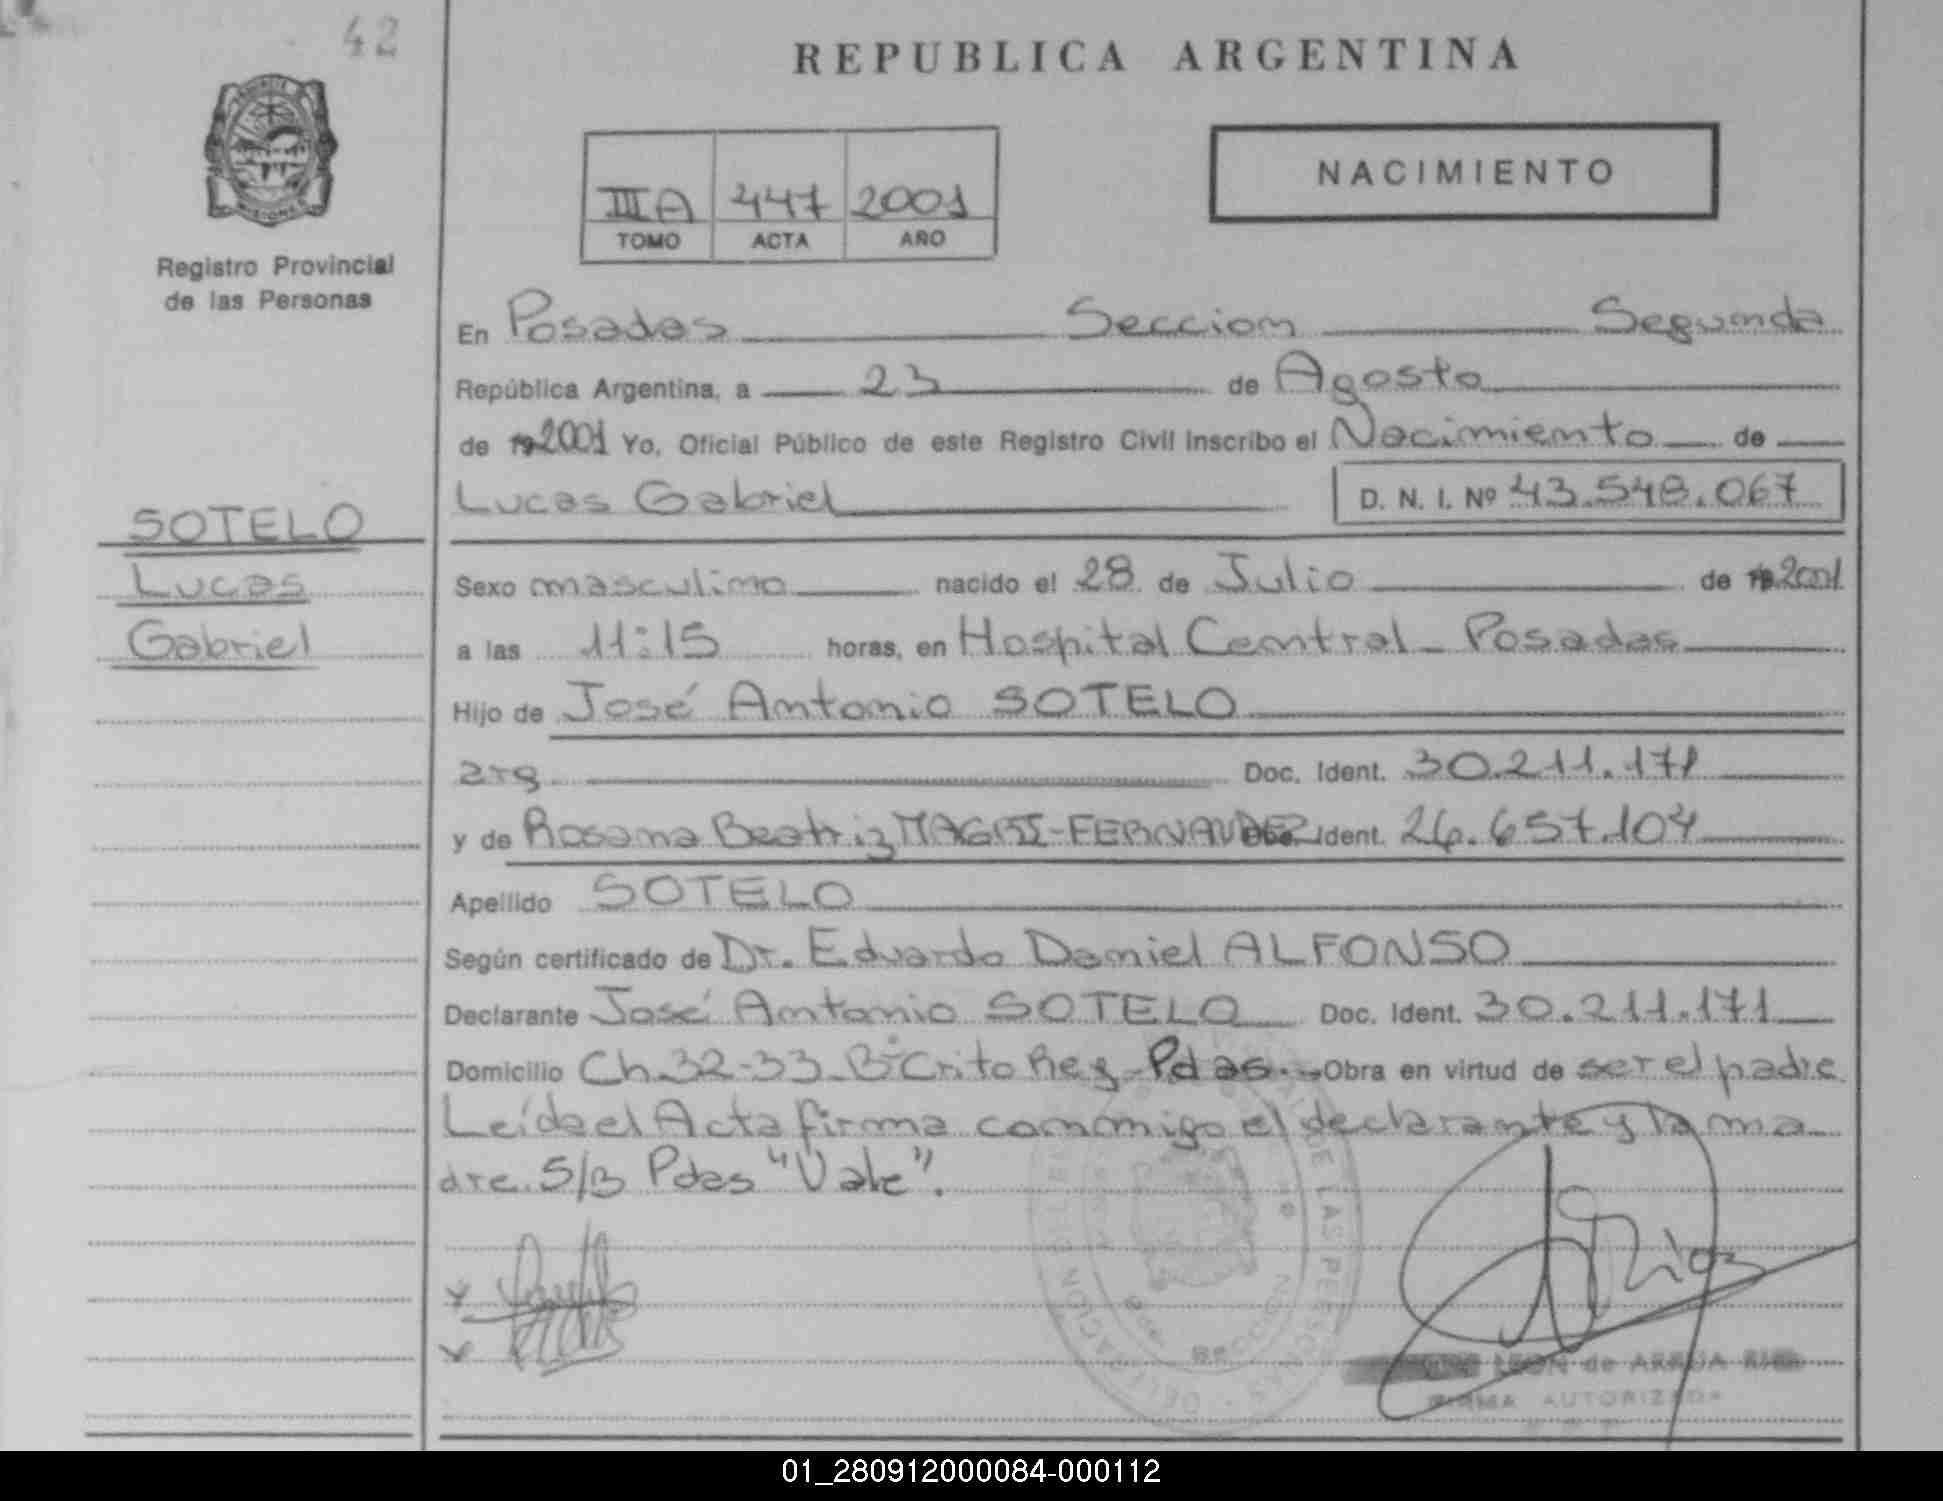 42
REPUBLICA ARGENTINA
NACIMIENTO
IIIA 447 2001
TOMO ACTA AÑO
MISIONES
Registro Provincial
de las Personas
En Posadas Seccion Segunda
República Argentina, a 23 de Agosto
de 192001 Yo, Oficial Público de este Registro Civil inscribo el Nacimiento de
Lucas Gabriel D. N. I. Nº 43.548.067
SOTELO
Lucas
Gabriel
Sexo masculino nacido el 28 de Julio de 192001
a las 11:15 horas, en Hospital Central - Posadas
Hijo de José Antonio SOTELO
arg Doc. Ident. 30.211.171
y de Rosana Beatriz MAGRI-FERNANDEZ Doc. Ident. 26.657.104
Apellido SOTELO
Según certificado de Dr. Eduardo Daniel ALFONSO
Declarante José Antonio SOTELO Doc. Ident. 30.211.171
Domicilio Ch. 32-33 Bº Crito Rey - Pdas. Obra en virtud de ser el padre
Leída el Acta firma conmigo el declarante y la ma
dre. S/B Pdas "Vale".
DELEGACION DE LAS PERSONAS
SECCION
Rios
LEON de
FIRMA AUTORIZADA
01_280912000084-000112